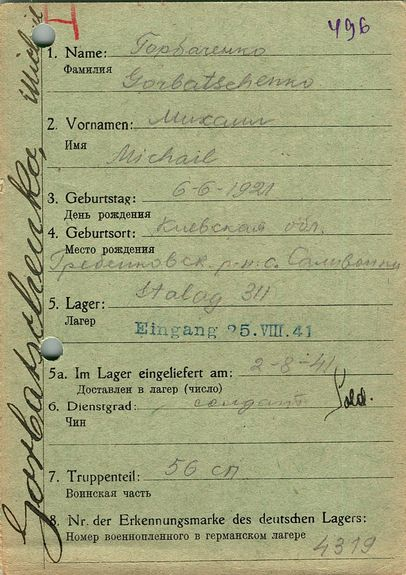 496
1. Name: Горбаченко
Фамилия
Gorbatschenko
2. Vornamen: Михаил
Имя
Michail
3. Geburtstag: 6-6-1921
День рождения
4. Geburtsort: Киевская обл.
Место рождения
Гребенковск. р-н. с. Саливонки
5. Lager: Stalag 311
Лагер
Eingang 25. VIII. 41
5a. Im Lager eingeliefert am: 2-8-41
Доставлен в лагер (число)
6. Dienstgrad: солдат Sold.
Чин
7. Truppenteil: 56 сп
Воинская часть
8. Nr. der Erkennungsmarke des deutschen Lagers:
Номер военнопленного в германском лагере
4319
Gorbatschenko, Michail